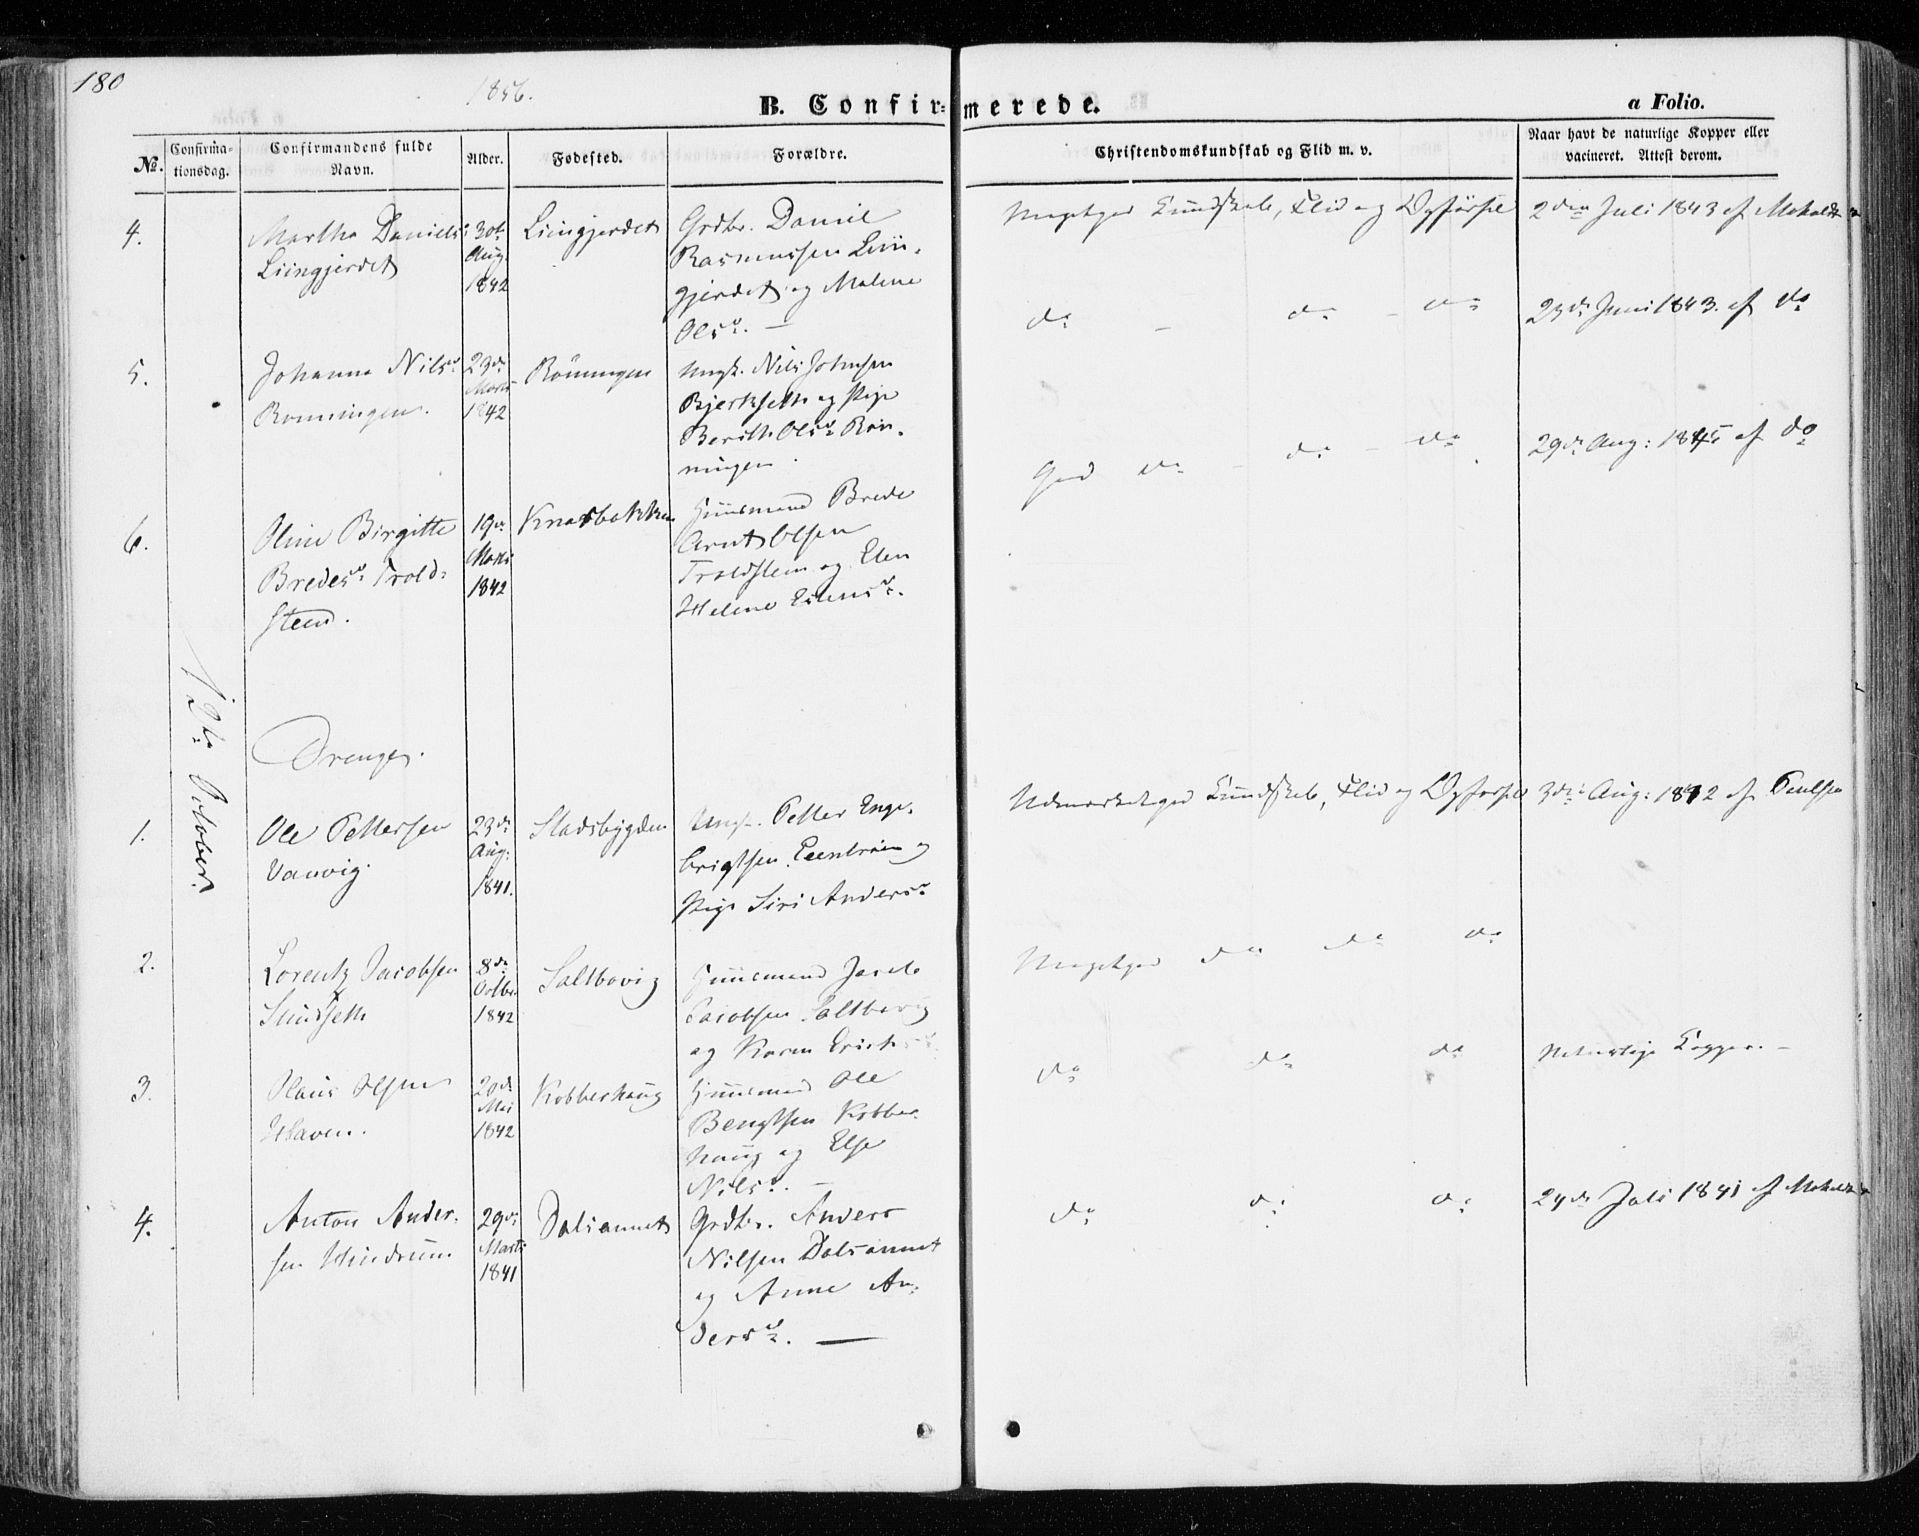 180
1856.
B. Confirmerede.
a Folio.
No.
Confirmationsdag.
Confirmandens fulde Navn.
Alder.
Fødested.
Forældre.
Christendomskundskab og Flid m. v.
Naar havt de naturlige Kopper eller vacineret. Attest derom.
12te October.
4.
Martha Daniels:
Liingjerdet
30te
Aug.
1842
Liingjerdet
Grdbr. Daniel
Rasmussen Liin-
gjerdet og Malene
Olsd. —
Megetgod Kundskab, Flid og Opførsel
2den Juli 1843 af
5.
Johanna Nilsd.
Ronningen.
23de
Marts
1842
Rönningen
Ungk. Nils Johnsen
Bjerkseth og Pige
Berith Olsd. Røn-
ningen.
do — do — do
23de Juni 1843. af do
6.
Oline Birgitte
Bredesd. Trold-
steen.
19de
Marts
1842
Knasbakken
Huusmand Brede
Arnt Olsen
Troldsteen og Elen
Helene Estensd.
God do — do — do
29de Aug: 1845 af do
Drenge.
1.
Ole Pettersen
Vanvig.
23de
Aug:
1841.
Stadsbygden
Ungk. Petter Enge-
brigtsen og
Pige Siri Andersd.
Udmærketgod Kundskab, Flid og Opførsel
3die Aug: 1842 af Paulsen
2.
Lorentz Jacobsen
8de
Octbr.
1842
Saltbovig
Huusmand Jacob
Jacobsen Saltbovig
og Karen Erichsd.
Megetgod do do do
3.
Olaus Olsen
Haven.
20de
Mai
1842
Kobberhaug
Huusmand Ole
Bengtsen Kobber-
haug og Else
Nilsd. —
do do do
Naturlige Kopper. —
4.
Anton Ander-
sen Hindrum
29de
Marts
1841
Dalsaunet
Grdbr. Anders
Nilsen Dalsaunet
og Anne An-
dersd. —
do do do
24de Juli 1841 af